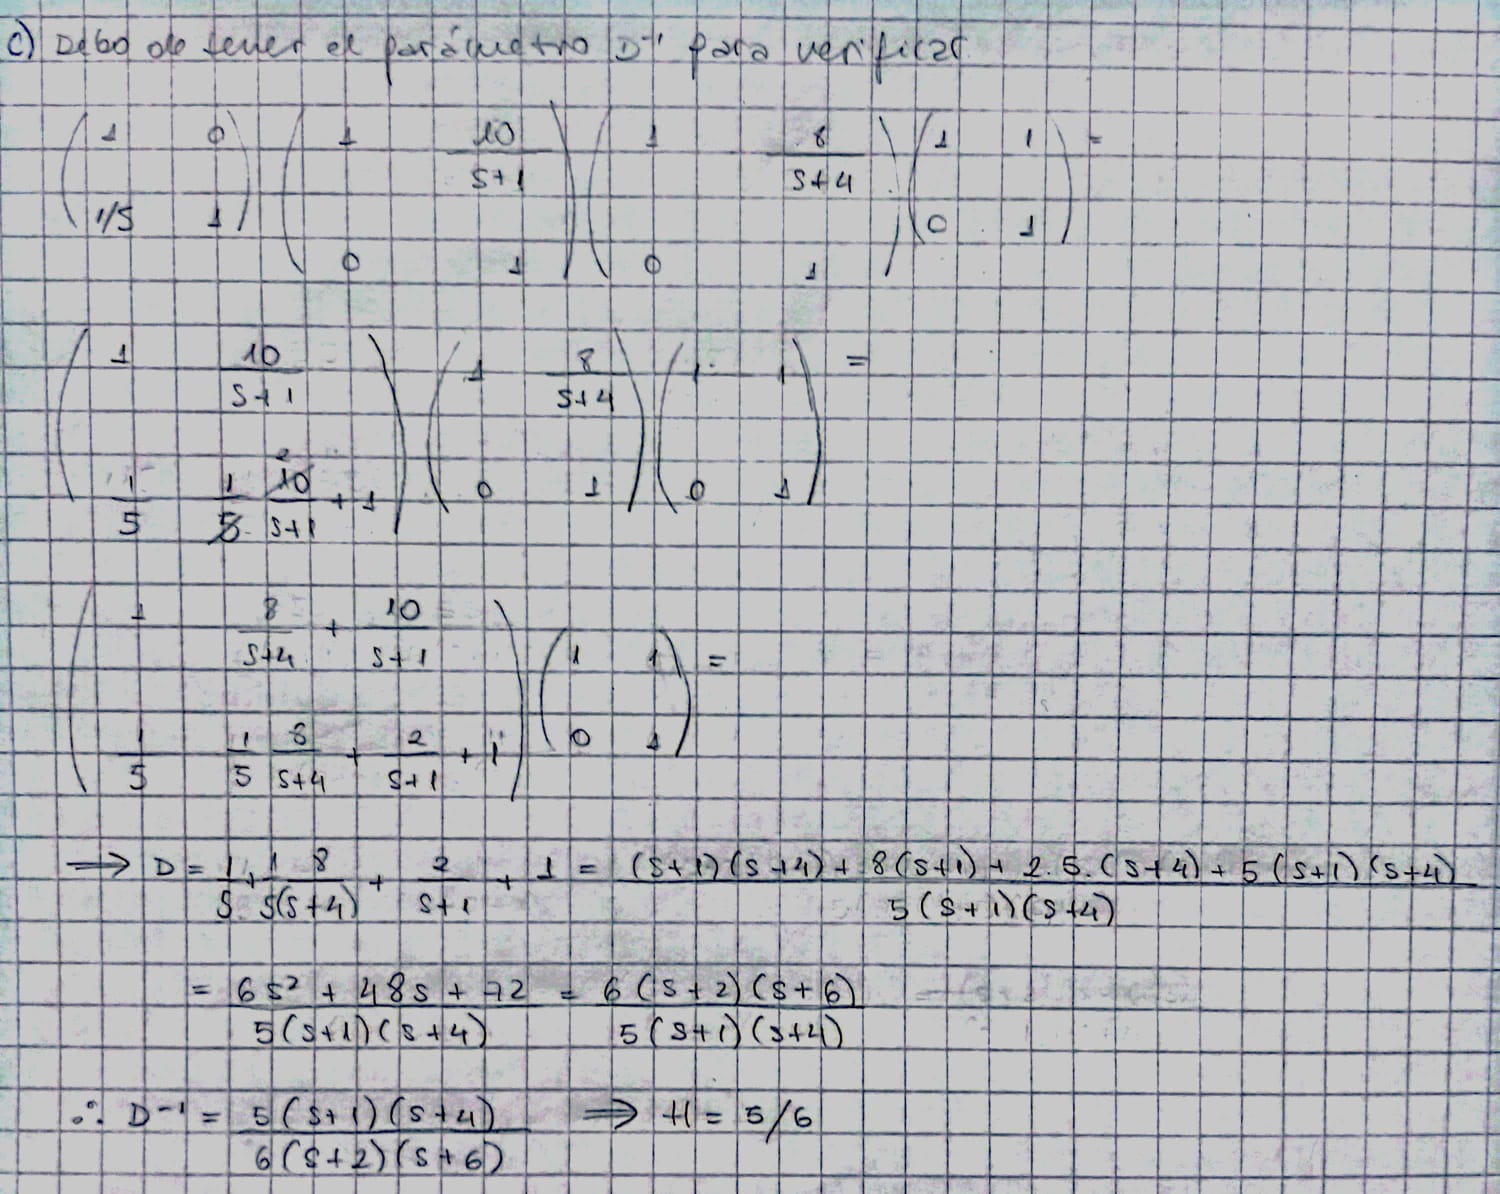 c) Debo de tener el parámetro D⁻¹ para verificar.
( 1 0 ; 1/5 1 ) ( 1 10/(s+1) ; 0 1 ) ( 1 8/(s+4) ; 0 1 ) ( 1 1 ; 0 1 ) =
( 1 10/(s+1) ; 1/5 1/5 10/(s+1) + 1 ) ( 1 8/(s+4) ; 0 1 ) ( 1 1 ; 0 1 ) =
( 1 8/(s+4) + 10/(s+1) ; 1/5 1/5 8/(s+4) + 2/(s+1) + 1 ) ( 1 1 ; 0 1 ) =
⟹ D = 1/5 + 1·8/5(s+4) + 2/(s+1) + 1 = ((s+1)(s+4) + 8(s+1) + 2.5.(s+4) + 5(s+1)(s+4))/(5(s+1)(s+4))
= (6s² + 48s + 72)/(5(s+1)(s+4)) = 6(s+2)(s+6)/(5(s+1)(s+4))
∴ D⁻¹ = 5(s+1)(s+4)/(6(s+2)(s+6)) ⟹ H = 5/6